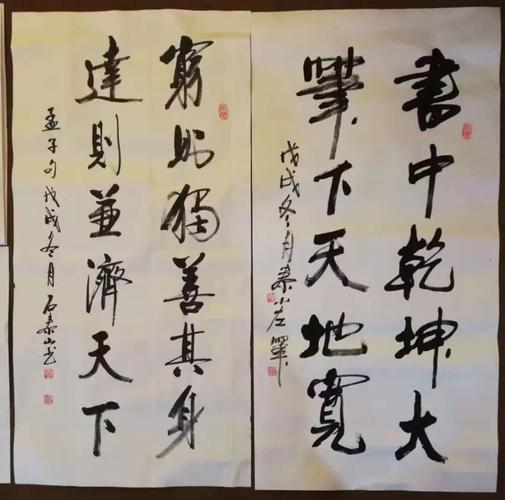 書中乾坤大
筆下天地寬
戊戌冬月泰山筆
窮則獨善其身
達則兼濟天下
孟子句戊戌冬月石泰山书